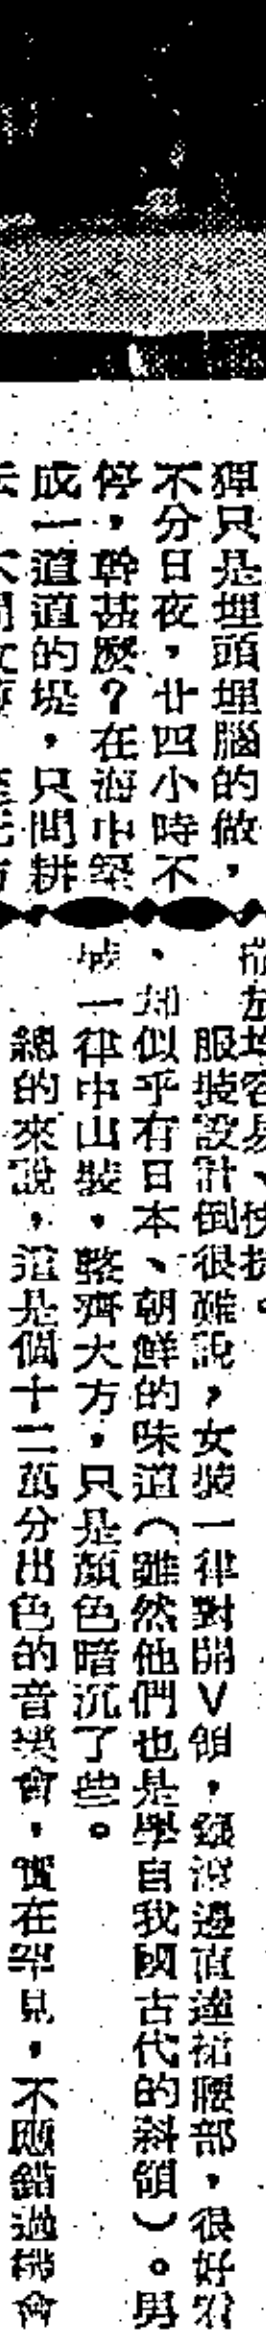 獋只是埋頭埋腦的做，
不分日夜，廿四小時不
停，幹甚麼？在海中築
成一道道的堤，只問耕
容易、快捷。
服裝設計倒很難說，女裝一律對開V領，鑲滾邊直達裙腰部，很好看
、却似乎有日本、朝鮮的味道（雖然他們也是學自我國古代的斜領）。男
裝一律中山裝，整齊大方，只是顏色暗沉了些。
總的來說，這是個十二萬分出色的音樂會，實在罕見，不應錯過機會